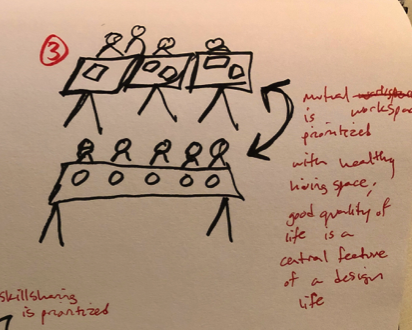 3
mutual workspace
is workspac
prioritized
with healthy
living space,
good quality of
life is a
central feature
of a design
life
skillsharing
is prioritized